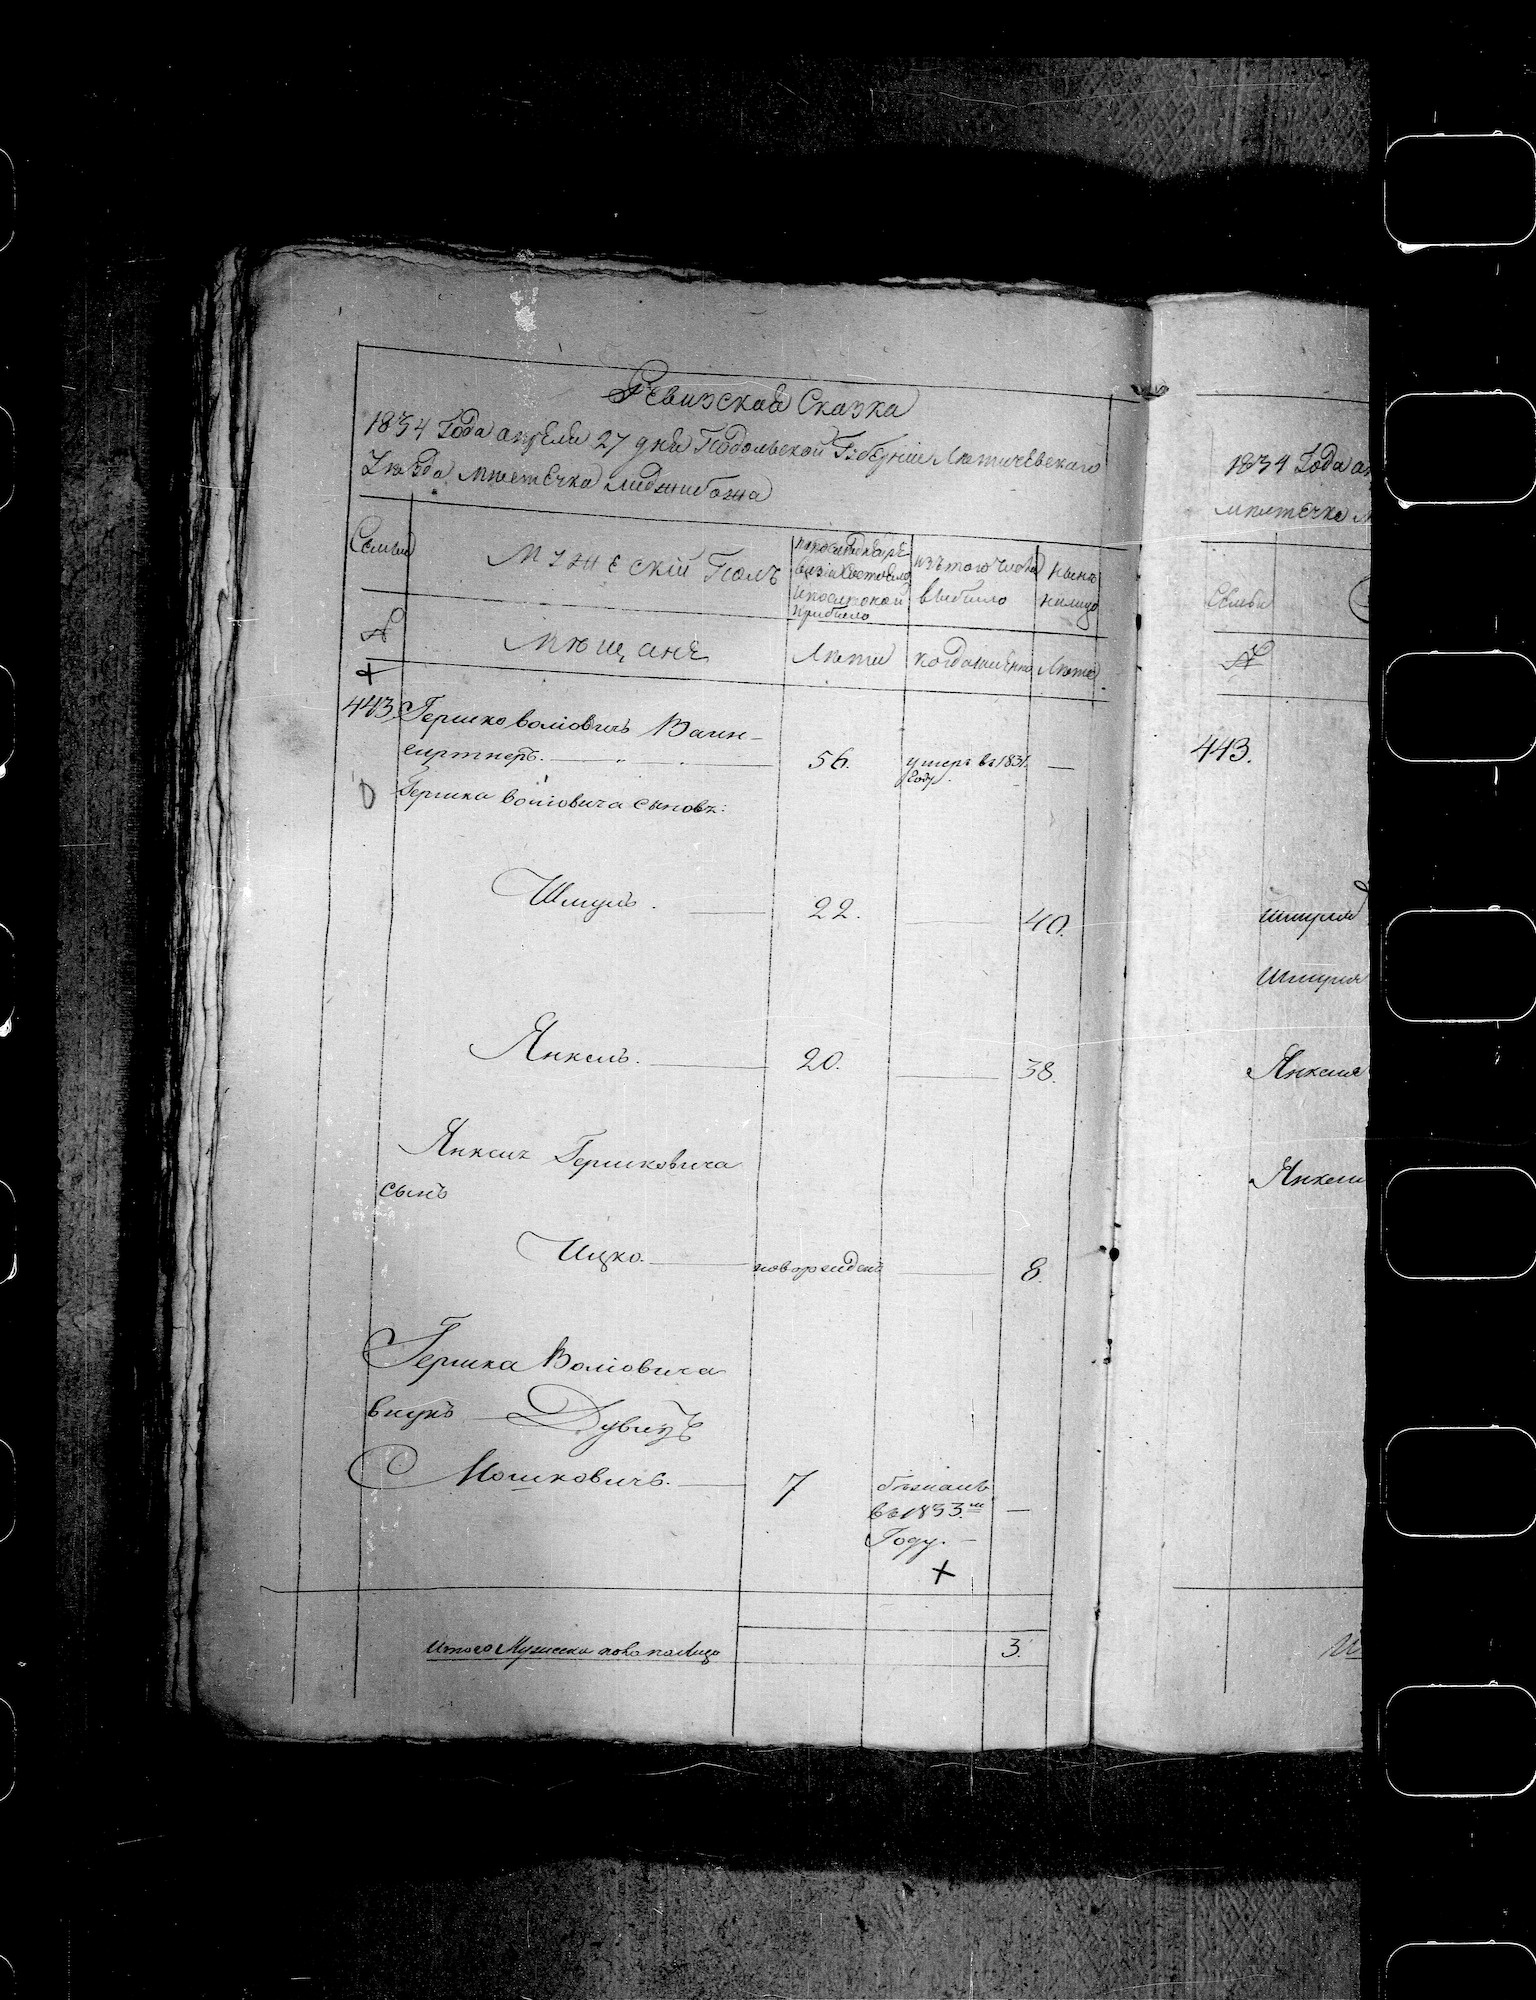 Ревизская Сказка
1834 Года апреля 27 дня Подольской Губерніи Летичевского
Уезда местечка Меджибожа
Семьи
Мужескій Полъ
по последней ре-
визіи состояло
и после оной
прибыло
изъ того числа
выбыло
ныне
на лицо
№
Мещане
Лета
когда именно
Лета
443.
ГершкоВоліовичъ Ваин-
гиртнеръ.
56.
умеръ въ 1831.
Году.
Гершка Волiовича сыновъ:
Шмуль.
22.
40.
Янкель.
20.
38.
Янкеля Гершковича
сынъ
Ицко.
новорожденъ
8.
Гершка Волiовича
внукъ Дувидъ
Мошковичъ.
7
бежалъ
въ 1833.м
Году.
Итого Мужеска пола на лицо
3.
1834 Года ап
местечка М
Семьи
№
443.
Шмуля
Шмуля
Янкеля
Янкеля